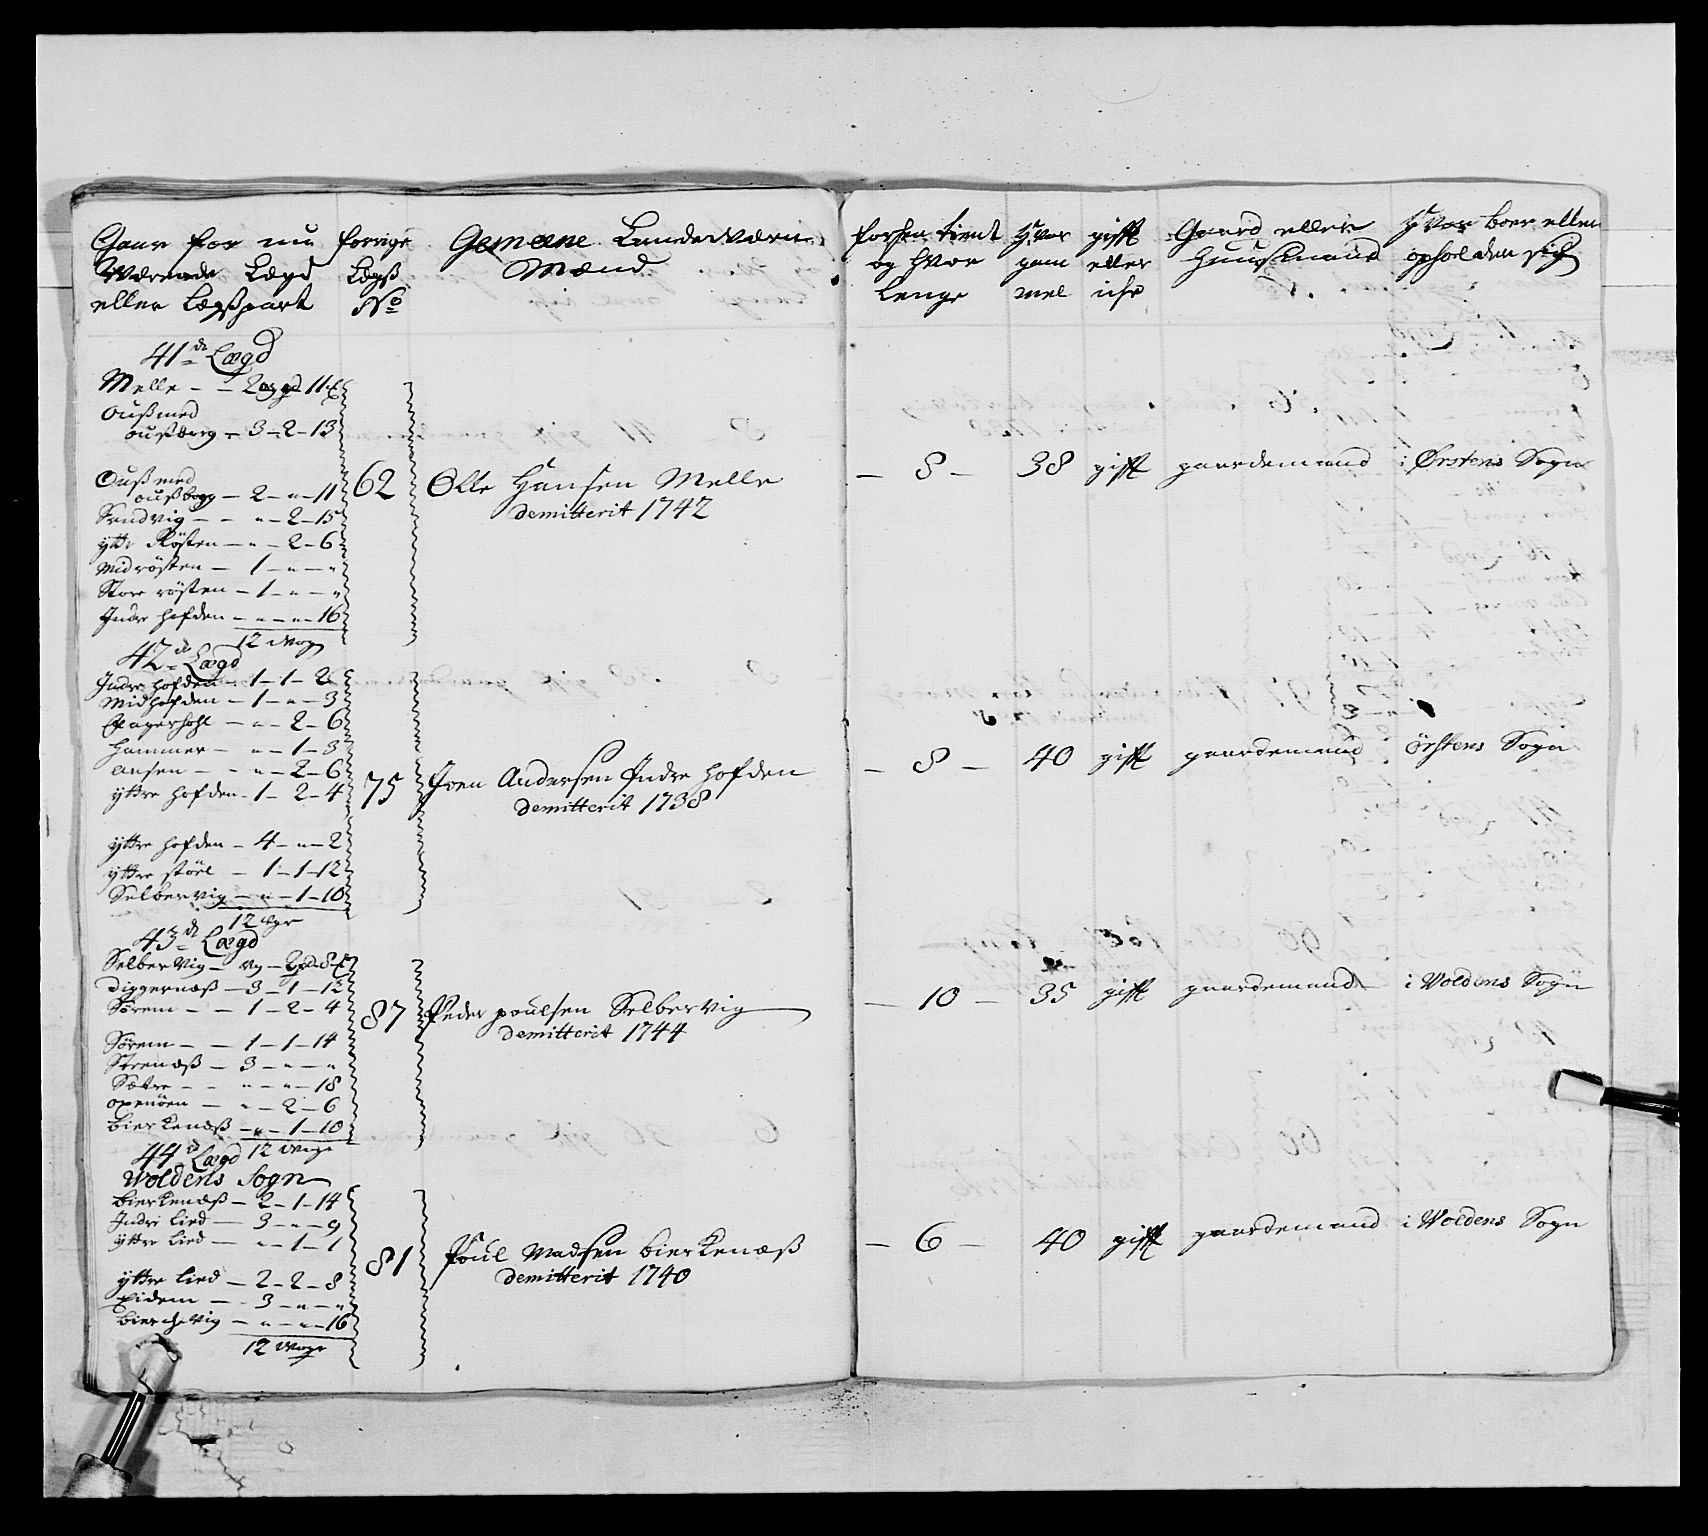 Gaar for nu
Værende Lægd
eller Lægßpart
forrige
Lægß
No
Gemeene Landeværn
Mænd
forhen tient
og hvor
lenge
Hvor
gam
mel
gifft
eller
ich
Gaard eller
Huusmand
Hvor boer eller
opholder sig
41de Lægd
Melle - - 2 11
Oußmed
oußberg - 3 - 2 - 13
Oußmed
oußberg - 2 - " - 11
Sendvig - - " - 2 - 15
ytte Røsten - " - 2 - 6
Midrøsten - 1 - " - "
Store røsten - 1 - " - "
Indre hofden - " - " - 16
12 Vog
62
Olle Hansen Melle
demitterit 1742
- 8 - 38 gifft gaardemand i Ørstens Sogn
42de Lægd
Indre hofden - 1 - 1 - 2
Midhofden - 1 - " - 3
Engeshohl - " - 2 - 6
Hammer - " - 1 - 3
Aasen - - " - 2 - 6
yttre hofden - 1 - 2 - 4
yttre hofden - 4 - " - 2
yttre støel - 1 - 1 - 12
Selbervig - " - 1 - 10
75
Joen Andersen Indre hofden
demitterit 1738
- 8 - 40 gifft gaardemand Ørstens Sogn
43de Lægd
Selbervig - Vg - 2 8
Diggernæß - 3 - 1 - 12
Sørem - - 1 - 2 - 4
Sørem - - 1 - 1 - 14
Strenæß - 3 - " - "
Sætre - - " - " - 18
openøen - " - 2 - 6
bierkenæß - " - 1 - 10
12 Voge
87
Peder poulsen Selbervig
demitterit 1744
- 10 - 35 gifft gaardemand i Woldens Sogn
44de Lægd
Woldens Sogn
bierkenæß - 2 - 1 - 14
Indre lied - 3 - " - 9
yttre lied - " - 1 - 1
yttre lied - 2 - 2 - 8
Eidem - - 3 - " - "
bierchevig - " - " - 16
12 Voge
81
Poul Madsen bierkenæß
demitterit 1740
- 6 - 40 gifft gaardemand i Woldens Sogn